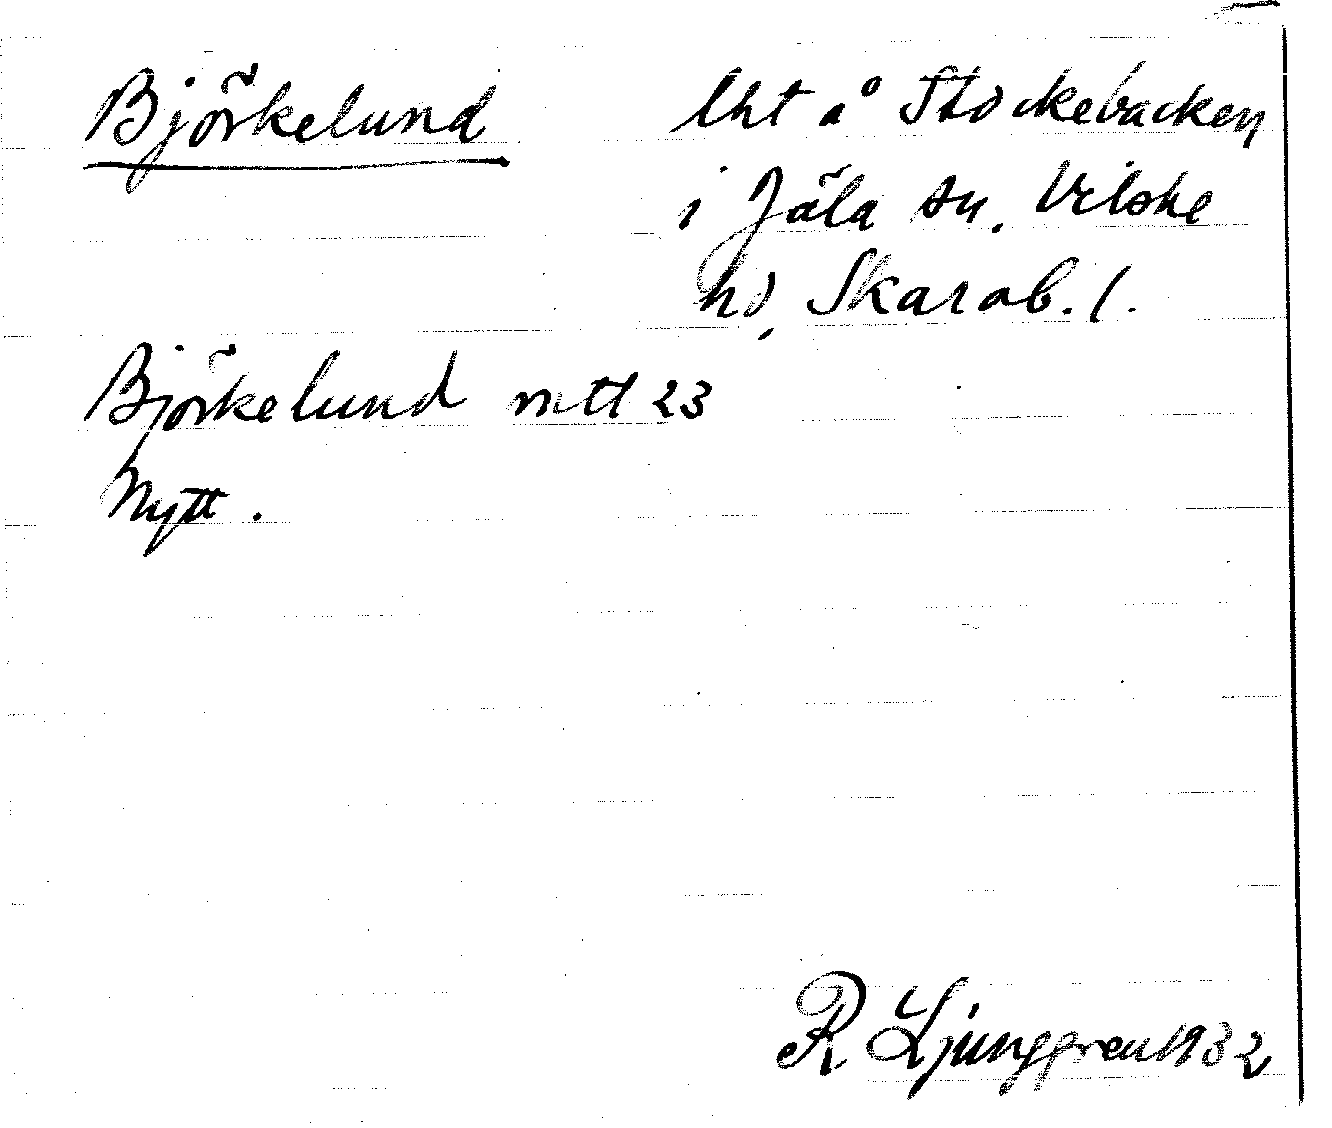 Björkelund
lht å Stockebacken
i Jäla sn. Vilske
hd, Skarab. l.
Björkelund mtl 23
Nytt.
R Ljunggren 1932